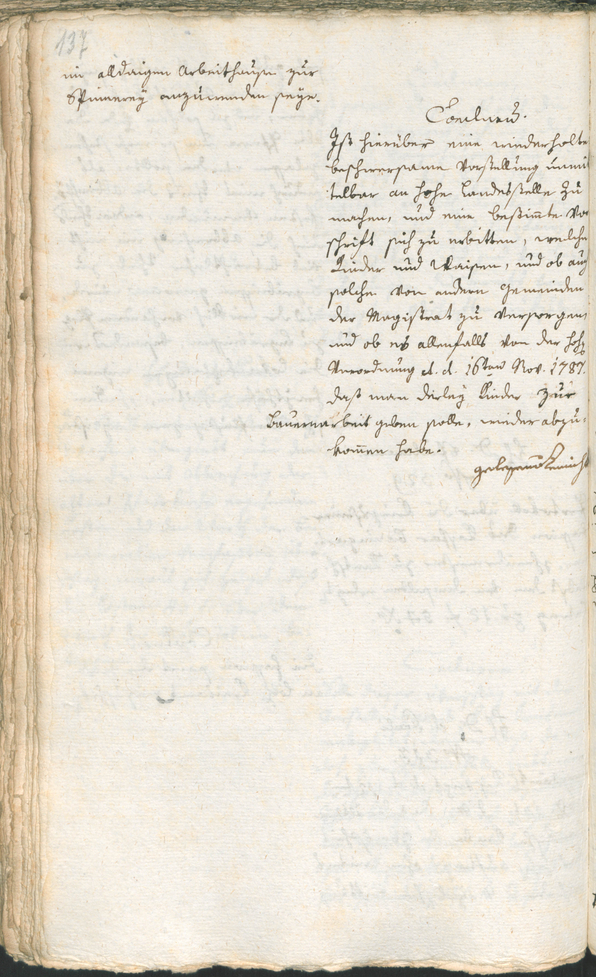 137
im alldaigen Arbeithause zur
Spinnerey anzuwenden seye.
Conclusum.
Ist hierüber eine wiederholte
beschwersame Vorstellung unmit
telbar an hohe Landesstelle zu
machen, und eine bestim̅te Vor
schrift sich zu erbitten, welche
Kinder und Waisen, und ob auch
solche von andern Gemeinden
der Magistrat zu versorgen,
und ob es allenfalls von der hohen
Verordnung d. d. 16ten Nov. 1787.
daß man derley Kinder zur
Bauernarbeit geben solle, wieder abzu-
kom̅en habe.